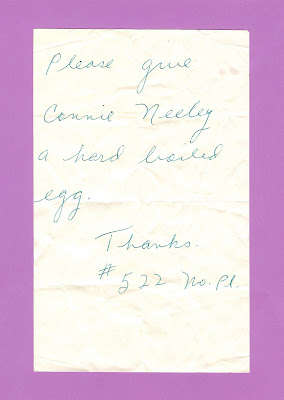 Please give
Connie Neeley
a hard boiled
egg.
Thanks.
#522 No. Pl.